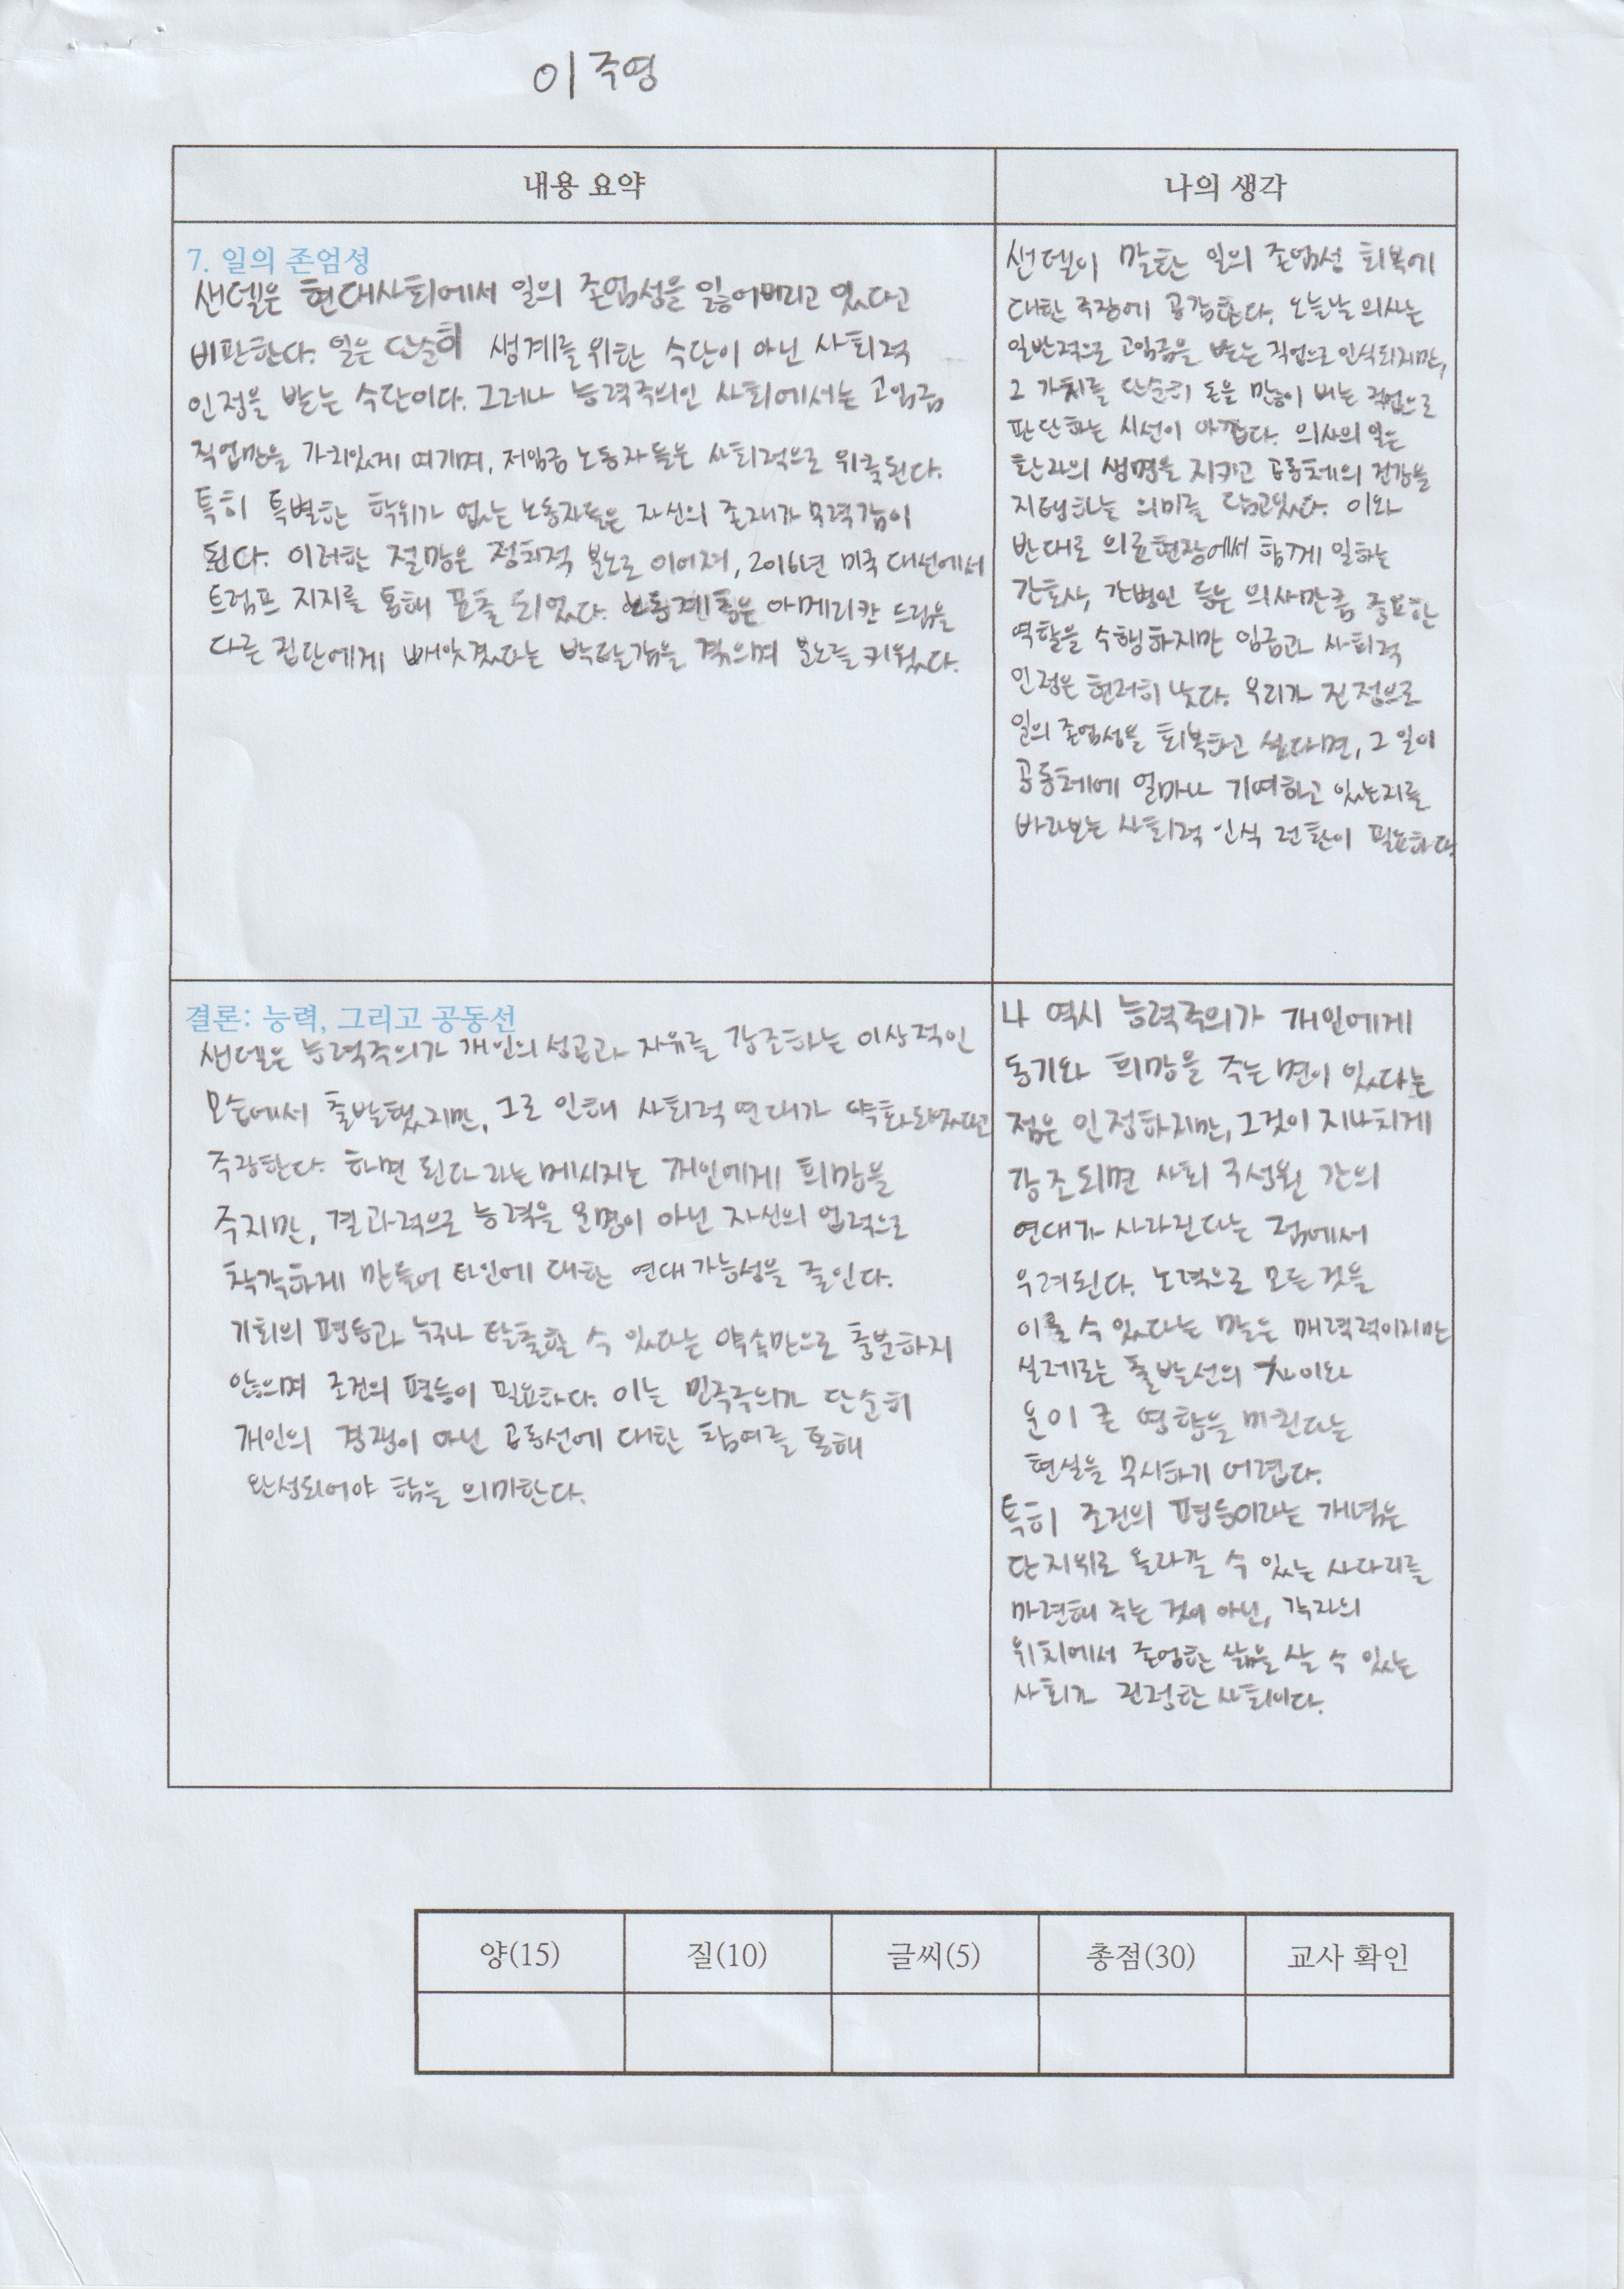 이주영
내용 요약
나의 생각
7. 일의 존엄성
샌델은 현대사회에서 일의 존엄성을 잃어버리고 있다고
비판한다. 일은 단순히 생계를 위한 수단이 아닌 사회적
인정을 받는 수단이다. 그러나 능력주의인 사회에서는 고임금
직업만을 가치있게 여기며, 저임금 노동자들은 사회적으로 위축된다.
특히 특별한 학위가 없는 노동자들은 자신의 존재가 무력감이
된다. 이러한 절망은 정치적 분노로 이어져, 2016년 미국 대선에서
트럼프 지지를 통해 표출 되었다. 아메리칸 드림을
다른 집단에게 빼앗겼다는 박탈감을 겪으며 분노를 키웠다.
샌델이 말한 일의 존엄성 회복에
대한 주장에 공감한다. 오늘날 의사는
일반적으로 고임금을 받는 직업으로 인식되지만,
그 가치를 단순히 돈을 많이 버는 직업으로
판단하는 시선이 아깝다. 의사의 일은
환자의 생명을 지키고 공동체의 건강을
지탱하는 의미를 담고있다. 이와
반대로 의료현장에서 함께 일하는
간호사, 간병인 등은 의사만큼 중요한
역할을 수행하지만 임금과 사회적
인정은 현저히 낮다. 우리가 진정으로
일의 존엄성을 회복하고 싶다면, 그 일이
공동체에 얼마나 기여하고 있는지를
바라보는 사회적 인식 전환이 필요하다.
결론: 능력, 그리고 공동선
샌델은 능력주의가 개인의 성공과 자유를 강조하는 이상적인
모습에서 출발했지만, 그로 인해 사회적 연대가 약화되었다고
주장한다. 하면 된다 라는 메시지는 개인에게 희망을
주지만, 결과적으로 능력을 운명이 아닌 자신의 업적으로
착각하게 만들어 타인에 대한 연대 가능성을 줄인다.
기회의 평등과 누구나 탈출할 수 있다는 약속만으로 충분하지
않으며 조건의 평등이 필요하다. 이는 민주주의가 단순히
개인의 경쟁이 아닌 공동선에 대한 참여를 통해
완성되어야 함을 의미한다.
나 역시 능력주의가 개인에게
동기와 희망을 주는 면이 있다는
점은 인정하지만, 그것이 지나치게
강조되면 사회 구성원 간의
연대가 사라진다는 점에서
우려된다. 노력으로 모든 것을
이룰 수 있다는 말은 매력적이지만
실제로는 출발선의 차이와
운이 큰 영향을 미친다는
현실을 무시하기 어렵다.
특히 조건의 평등이라는 개념은
단지 위로 올라갈 수 있는 사다리를
마련해 주는 것이 아닌, 각자의
위치에서 존엄한 삶을 살 수 있는
사회가 진정한 사회이다.
양(15)
질(10)
글씨(5)
총점(30)
교사 확인